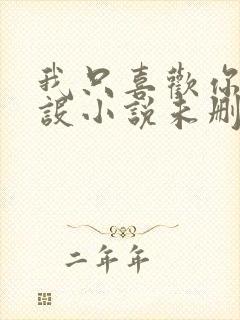 我只喜歡你
設小說未刪
二年年